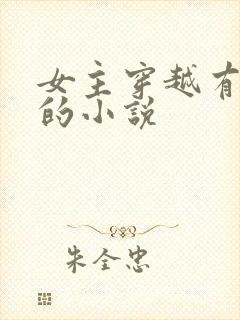 女主穿越有
的小説
朱全忠